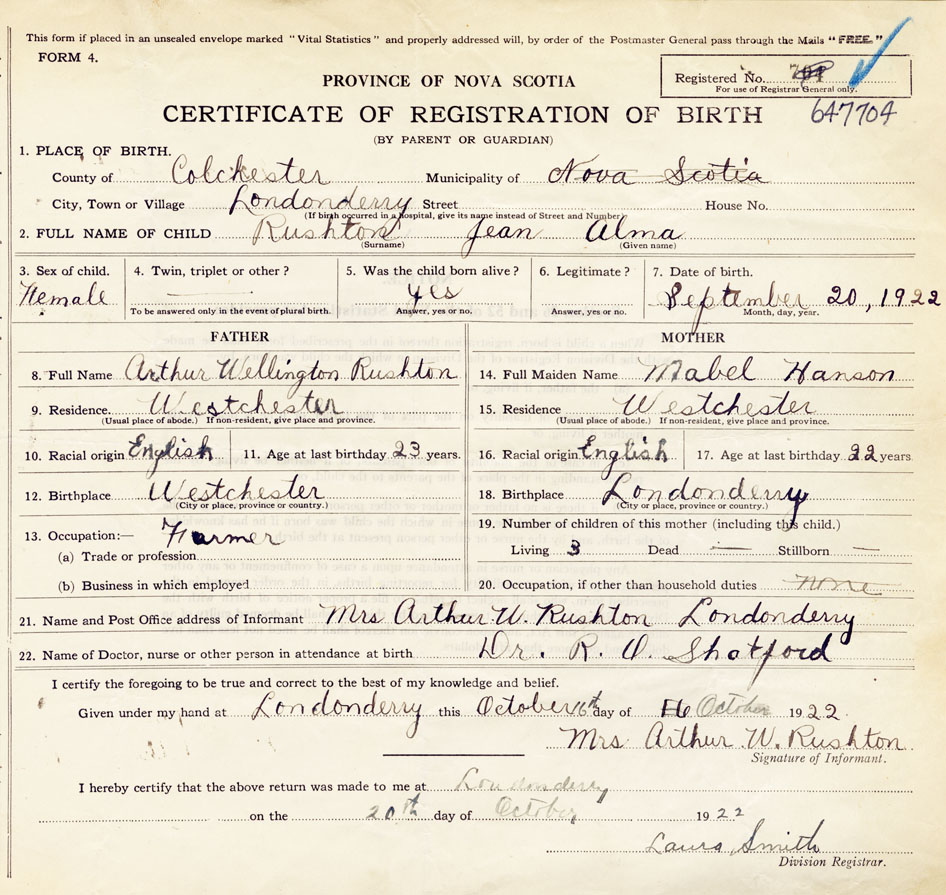 This form if placed in an unsealed envelope marked "Vital Statistics" and properly addressed will, by order of the Postmaster General pass through the Mails "FREE."
FORM 4.
Registered No.
For use of Registrar General only.
PROVINCE OF NOVA SCOTIA
647704
CERTIFICATE OF REGISTRATION OF BIRTH
(BY PARENT OR GUARDIAN)
1. PLACE OF BIRTH.
County of Colchester Municipality of Nova Scotia
City, Town or Village Londonderry Street House No.
(If birth occurred in a hospital, give its name instead of Street and Number)
2. FULL NAME OF CHILD Rushton Jean Alma
(Surname) (Given name)
3. Sex of child. 4. Twin, triplet or other? 5. Was the child born alive? 6. Legitimate? 7. Date of birth.
Female yes September 20, 1922
To be answered only in the event of plural birth. Answer, yes or no. Answer, yes or no. Month, day, year.
FATHER MOTHER
8. Full Name Arthur Wellington Rushton 14. Full Maiden Name Mabel Hanson
9. Residence. Westchester 15. Residence Westchester
(Usual place of abode.) If non-resident, give place and province. (Usual place of abode.) If non-resident, give place and province.
10. Racial origin English 11. Age at last birthday 23 years. 16. Racial origin English 17. Age at last birthday 22 years
12. Birthplace Westchester 18. Birthplace Londonderry
(City or place, province or country.) (City or place, province or country.)
13. Occupation:— Farmer 19. Number of children of this mother (including this child.)
(a) Trade or profession Living 3 Dead — Stillborn —
(b) Business in which employed 20. Occupation, if other than household duties none
21. Name and Post Office address of Informant Mrs Arthur W. Rushton Londonderry
22. Name of Doctor, nurse or other person in attendance at birth Dr. R. O. Shatford
I certify the foregoing to be true and correct to the best of my knowledge and belief.
Given under my hand at Londonderry this October 16th day of 16 October 1922.
Mrs Arthur W. Rushton
Signature of Informant.
I hereby certify that the above return was made to me at Londonderry
on the 20th day of October 1922
Laura Smith
Division Registrar.